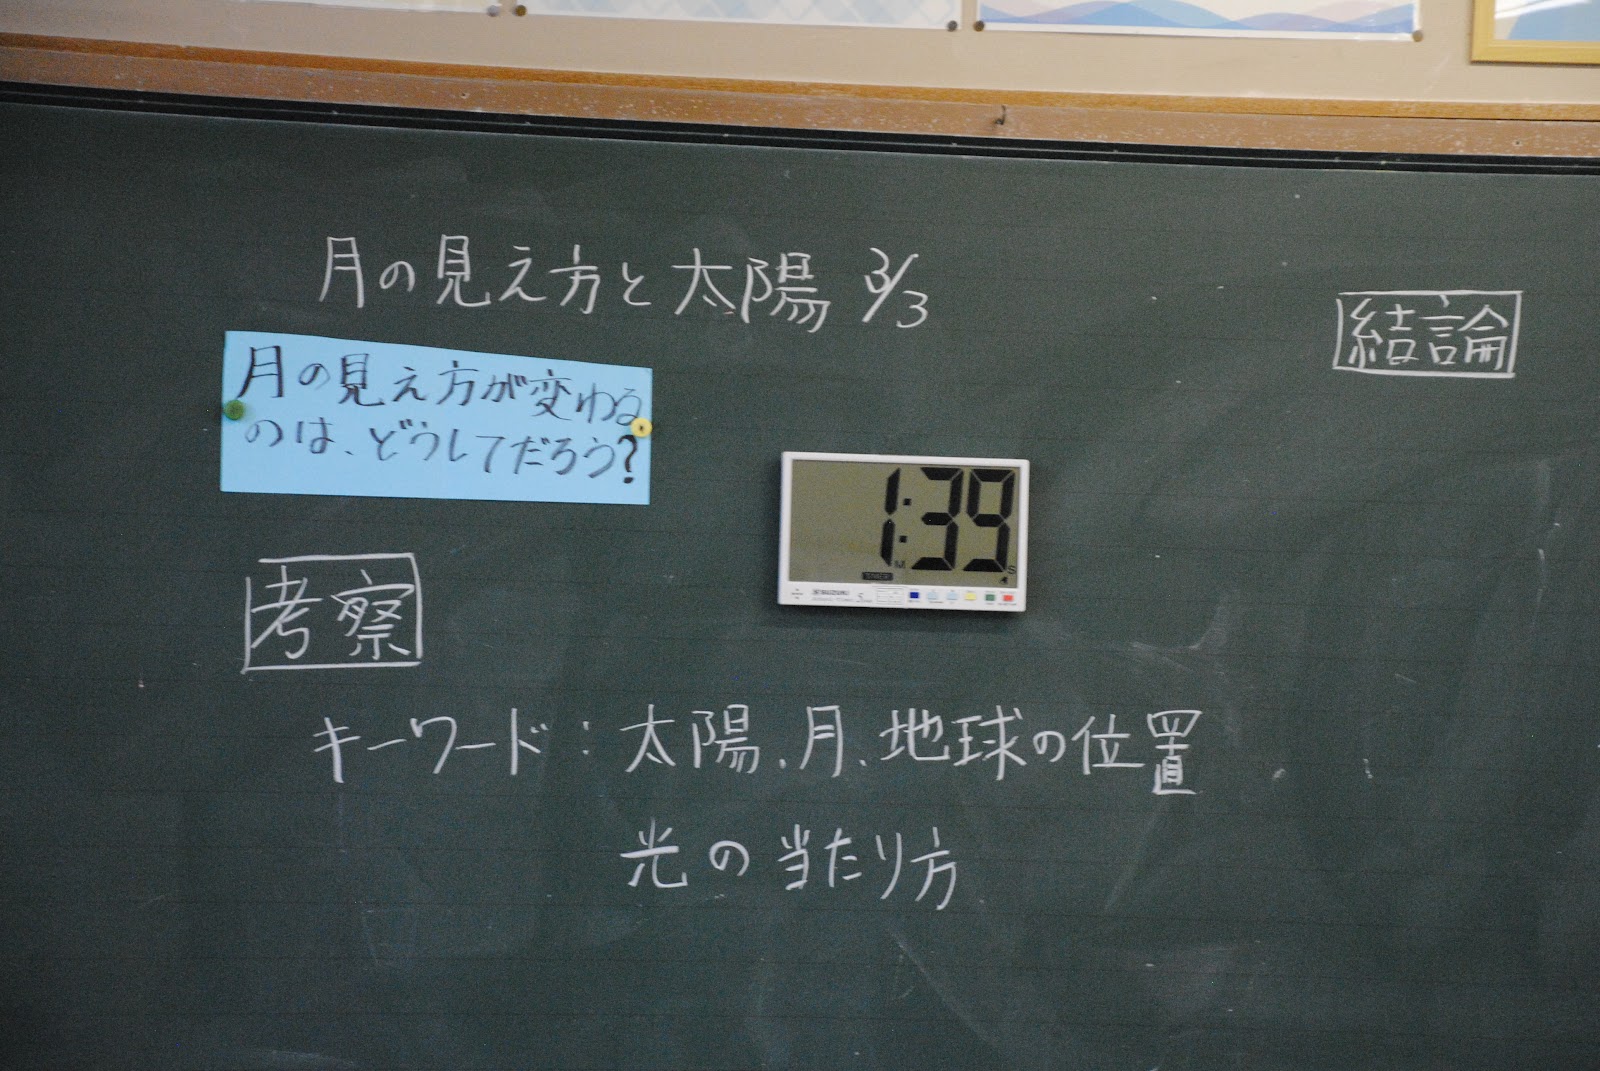 月の見え方と太陽 3/3
結論
月の見え方が変わる
のは、どうしてだろう?
1:39
M
S
TIMER
SUZUKI
考察
キーワード：太陽、月、地球の位置
光の当たり方